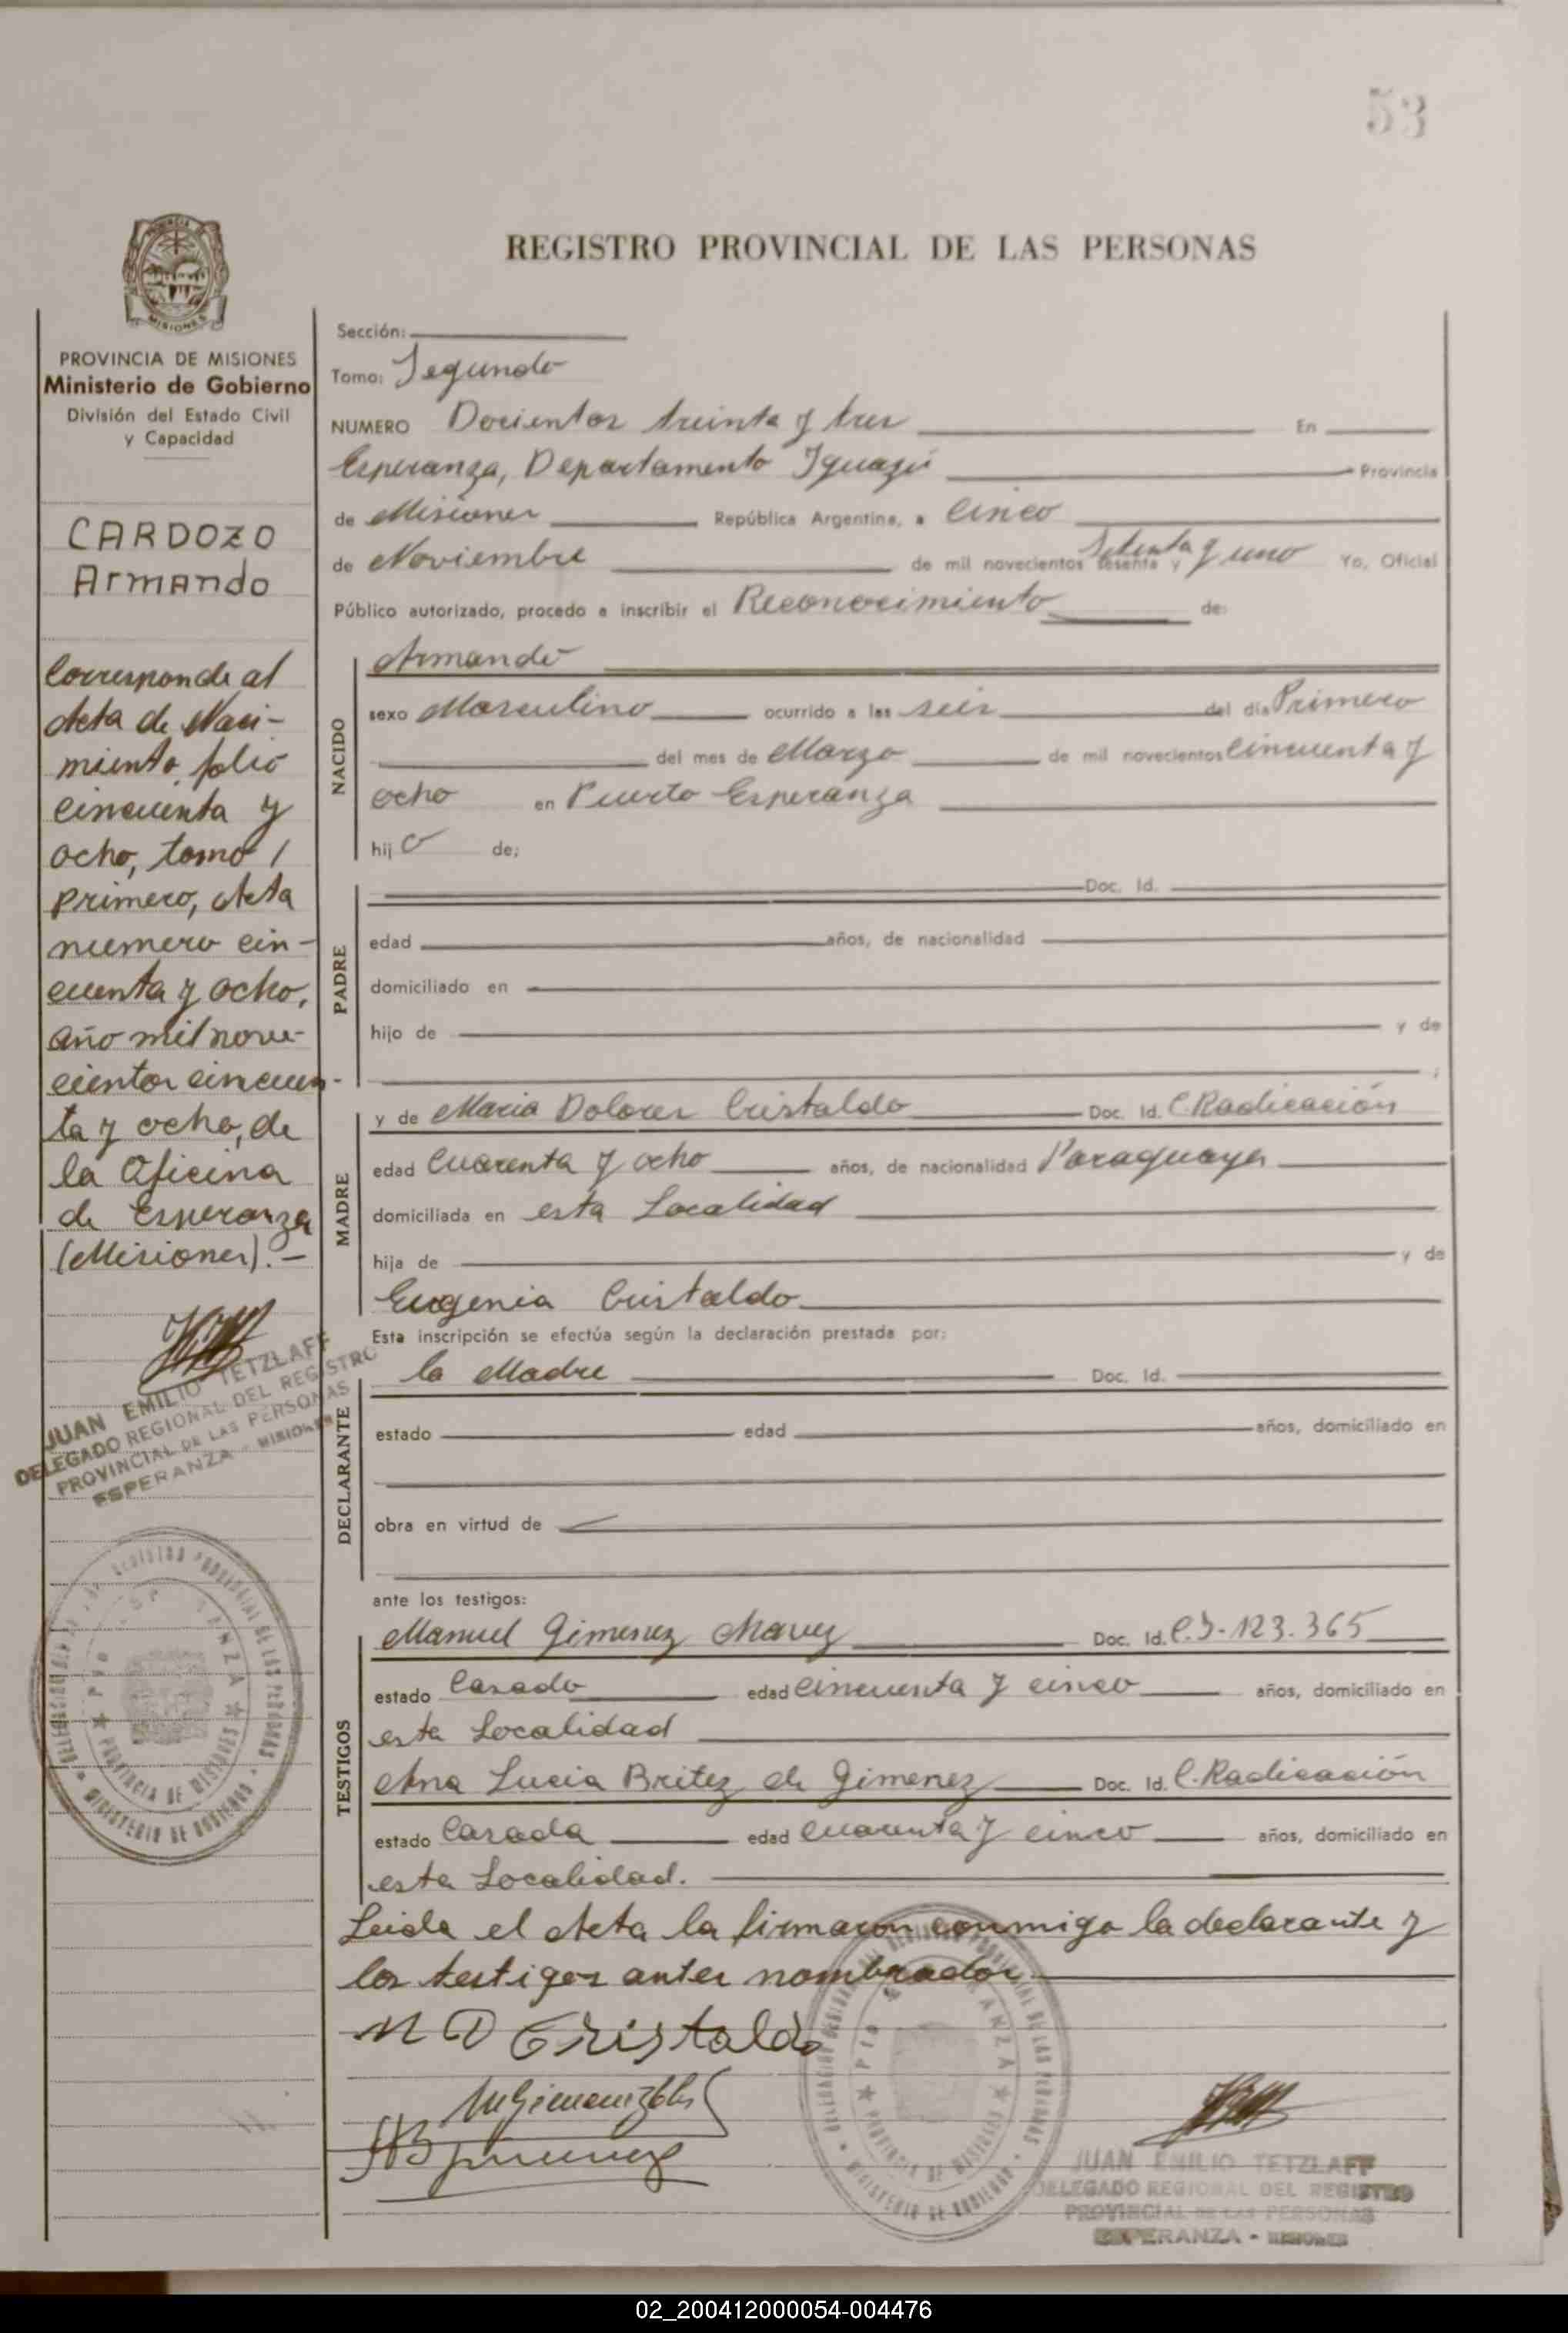 53
REGISTRO PROVINCIAL DE LAS PERSONAS
MISIONES
PROVINCIA DE MISIONES
Ministerio de Gobierno
División del Estado Civil
y Capacidad
CARDOZO
Armando
Corresponde al
Acta de Naci-
miento, folio
cincuenta y
ocho, tomo /
primero, Acta
numero cin-
cuenta y ocho,
año mil nove-
cientos cincuen-
ta y ocho, de
la Oficina
de Esperanza
(Misiones).-
JUAN EMILIO TETZLAFF
DELEGADO REGIONAL DEL REGISTRO
PROVINCIAL DE LAS PERSONAS
ESPERANZA - MISIONES
Sección:
Tomo: Segundo
NUMERO Docientos treinta y tres En
Esperanza, Departamento Iguazú Provincia
de Misiones República Argentina, a Cinco
de Noviembre de mil novecientos sesenta y Setenta y uno Yo, Oficial
Público autorizado, procedo a inscribir el Reconocimiento de:
NACIDO
Armando
sexo Masculino ocurrido a las seis del día Primero
del mes de Marzo de mil novecientos Cincuenta y
ocho en Puerto Esperanza
hij o de;
PADRE
Doc. Id.
edad años, de nacionalidad
domiciliado en
hijo de y de
;
MADRE
y de Maria Dolores Cristaldo Doc. Id. C. Radicación
edad Cuarenta y ocho años, de nacionalidad Paraguaya
domiciliada en esta Localidad
hija de y de
Eugenia Cristaldo
Esta inscripción se efectúa según la declaración prestada por:
DECLARANTE
la Madre Doc. Id.
estado edad años, domiciliado en
obra en virtud de
ante los testigos:
TESTIGOS
Manuel Gimenez Chavez Doc. Id. C.I-123.365
estado Casado edad Cincuenta y cinco años, domiciliado en
esta Localidad
Ana Lucia Britez de Gimenez Doc. Id. C. Radicación
estado Casada edad Cuarenta y cinco años, domiciliado en
esta Localidad.
Leida el Acta la firmaron conmigo la declarante y
los testigos antes nombrados
M D Cristaldo
JUAN EMILIO TETZLAFF
DELEGADO REGIONAL DEL REGISTRO
PROVINCIAL DE LAS PERSONAS
ESPERANZA - MISIONES
02_200412000054-004476